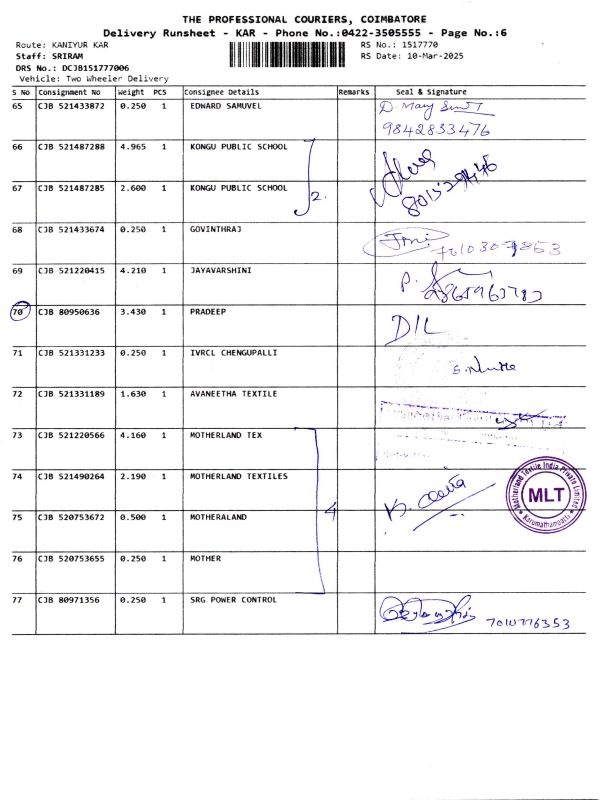 THE PROFESSIONAL COURIERS, COIMBATORE
Delivery Runsheet - KAR - Phone No.:0422-3505555 - Page No.:6
Route: KANIYUR KAR RS No.: 1517770
Staff: SRIRAM RS Date: 10-Mar-2025
DRS No.: DCJB151777006
Vehicle: Two Wheeler Delivery
S No Consignment No Weight PCS Consignee Details Remarks Seal & Signature
65 CJB 521433872 0.250 1 EDWARD SAMUVEL D. Mary
9842833476
66 CJB 521487288 4.965 1 KONGU PUBLIC SCHOOL
67 CJB 521487285 2.600 1 KONGU PUBLIC SCHOOL 2.
68 CJB 521433674 0.250 1 GOVINTHRAJ
69 CJB 521220415 4.210 1 JAYAVARSHINI P.
70 CJB 80950636 3.430 1 PRADEEP D/L
71 CJB 521331233 0.250 1 IVRCL CHENGUPALLI
72 CJB 521331189 1.630 1 AVANEETHA TEXTILE
73 CJB 521220566 4.160 1 MOTHERLAND TEX
74 CJB 521490264 2.190 1 MOTHERLAND TEXTILES
Motherland Textile India Private Limited
MLT
Karumathampatti
4
75 CJB 520753672 0.500 1 MOTHERALAND
76 CJB 520753655 0.250 1 MOTHER
77 CJB 80971356 0.250 1 SRG POWER CONTROL
7010776353